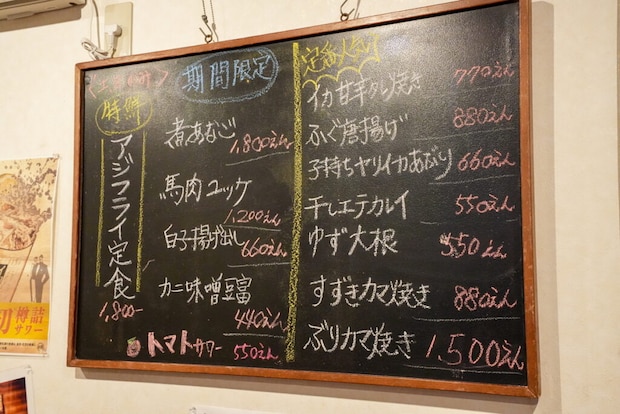 特鮮
アジフライ定食
1,800-
期間限定
煮あなご
1,800えん
馬肉ユッケ
1,200えん
白子揚げ出し
660えん
カニ味噌豆富
440えん
トマトサワー 550えん
定番人気!!
イカ甘辛タレ焼き 770えん
ふぐ唐揚げ 880えん
子持ちヤリイカあぶり 660えん
干しエテカレイ 550えん
ゆず大根 550えん
すずきカマ焼き 880えん
ぶりカマ焼き 1,500えん
樽詰
サワー